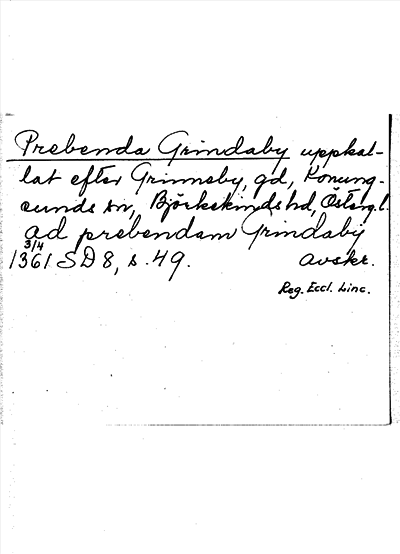 Prebenda Grindaby uppkal-
lat efter Grinneby, gd, Konung-
sunds sn, Björkekinds hd, Östergl.
ad prebendam Grindaby
3/4
1361 SD 8, s. 49. avskr.
Reg. Eccl. Linc.